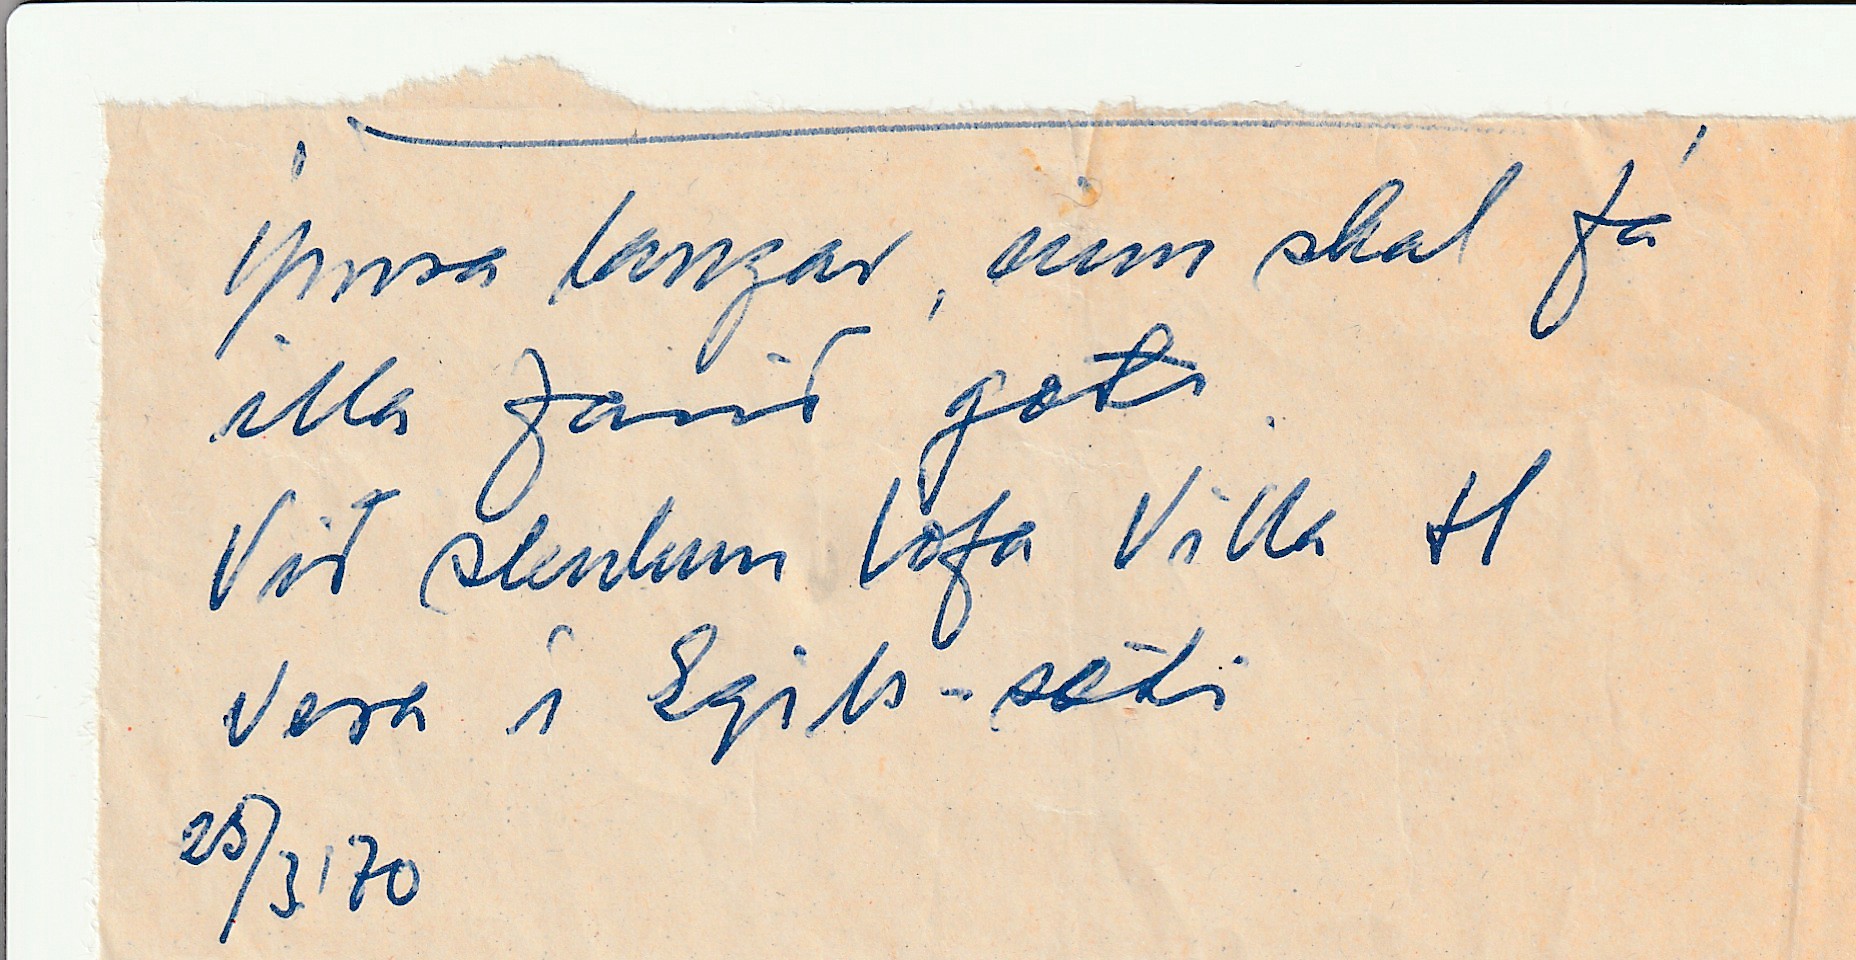 Ýmsa langar, einn skal fá
illa farið gæti.
Við skulum lofa Villa H
vera í Egils-sæti
25/3 '70